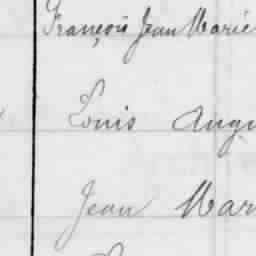 François Jean Marie
Louis Augu
Jean Mar